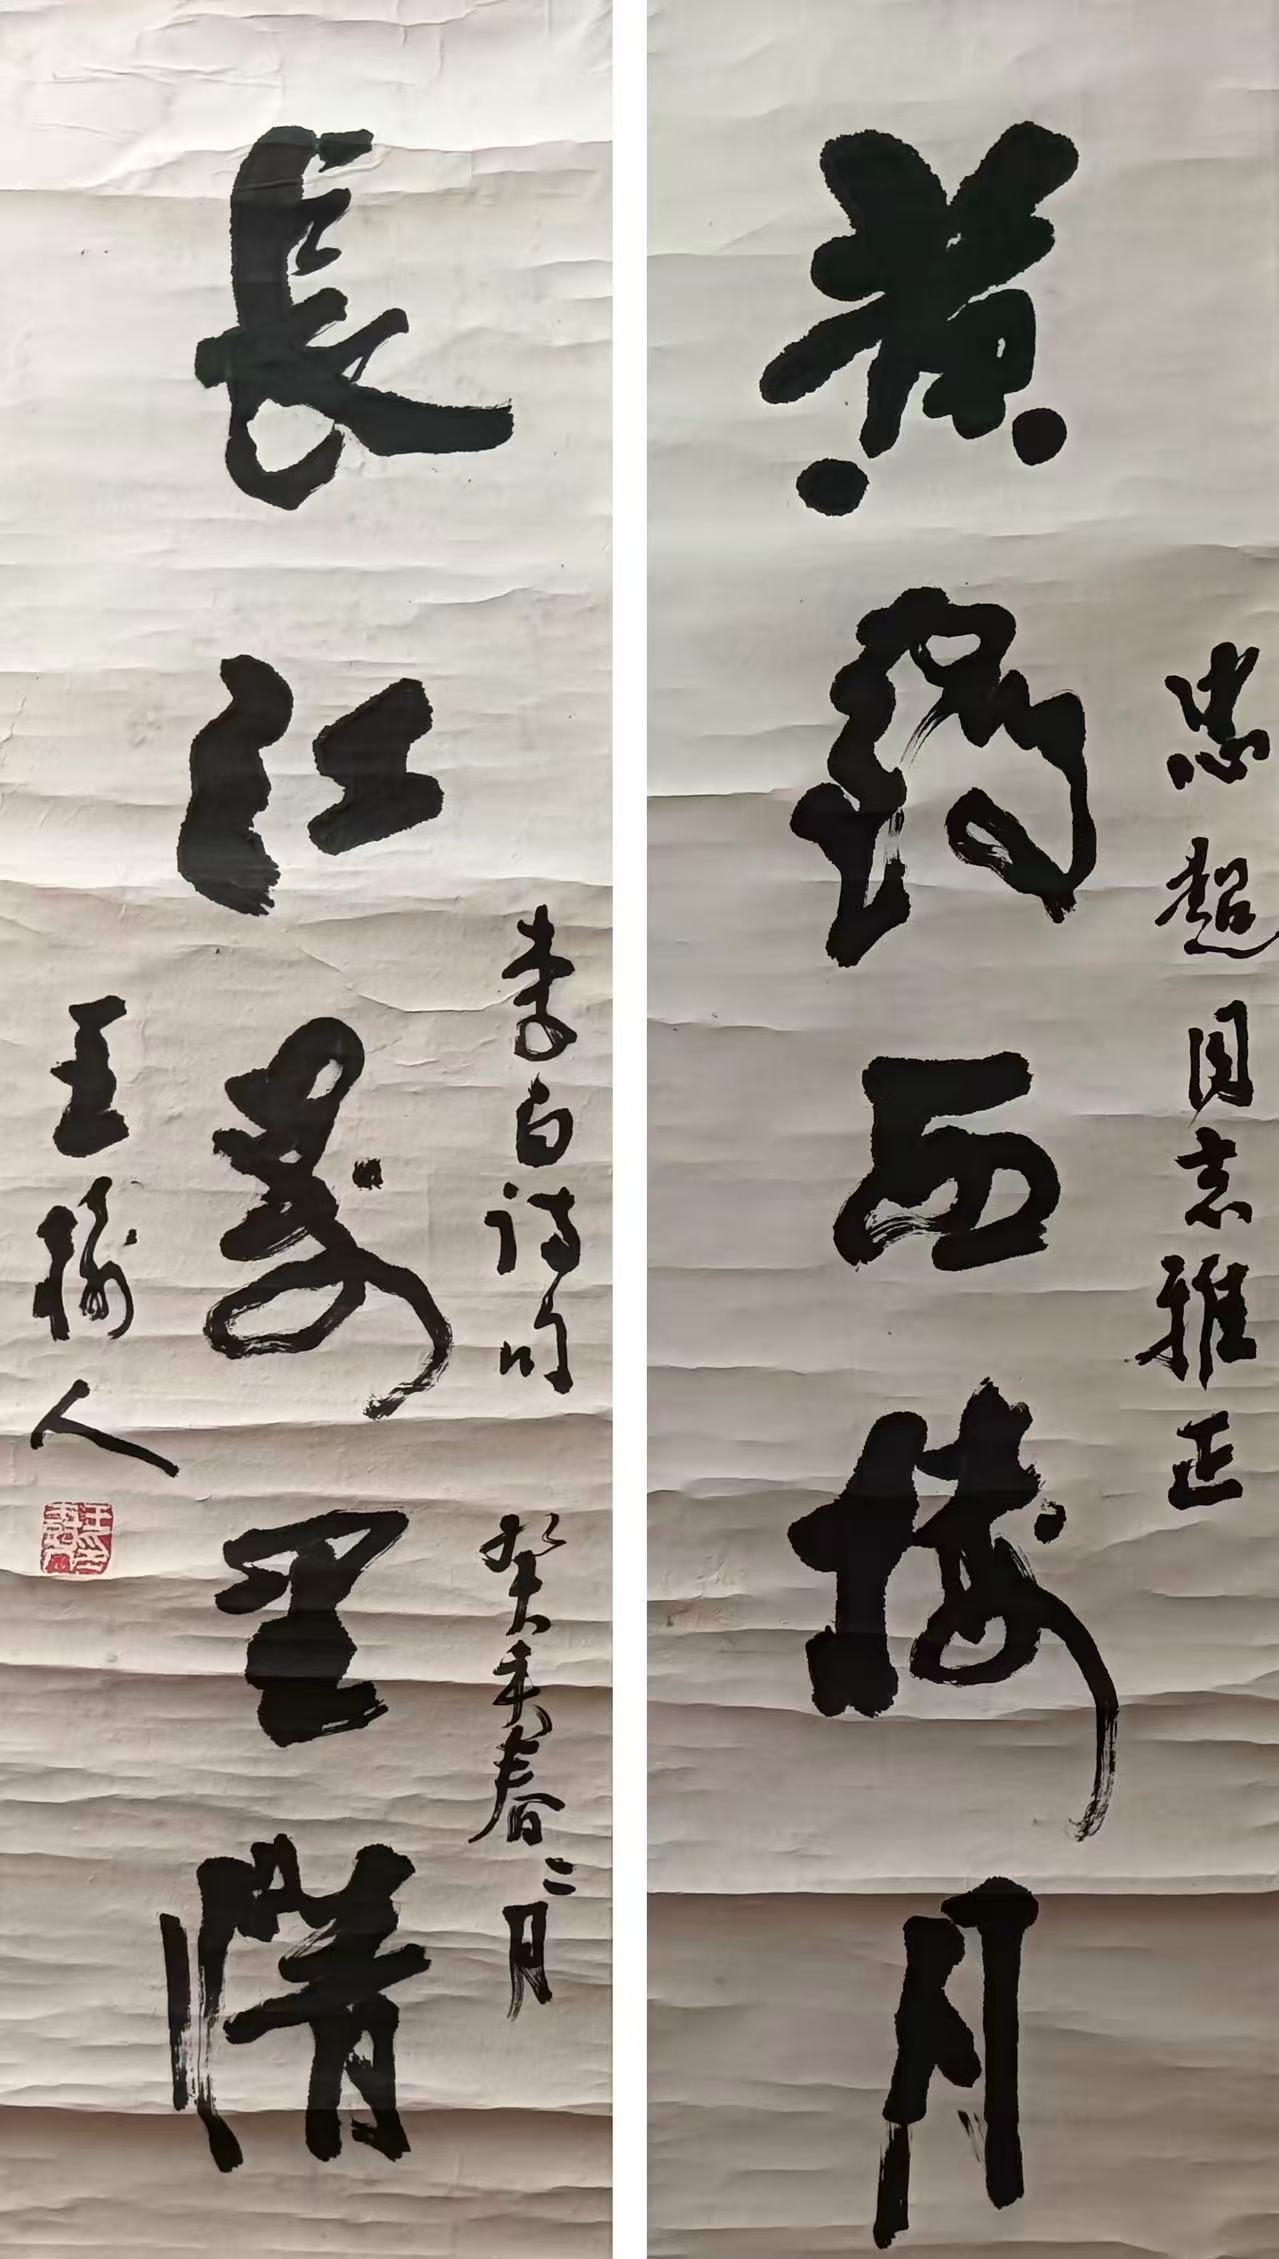 黄鶴西楼月
忠超同志雅正
長江萬里情
李白诗句 癸亥春二月
王榆人